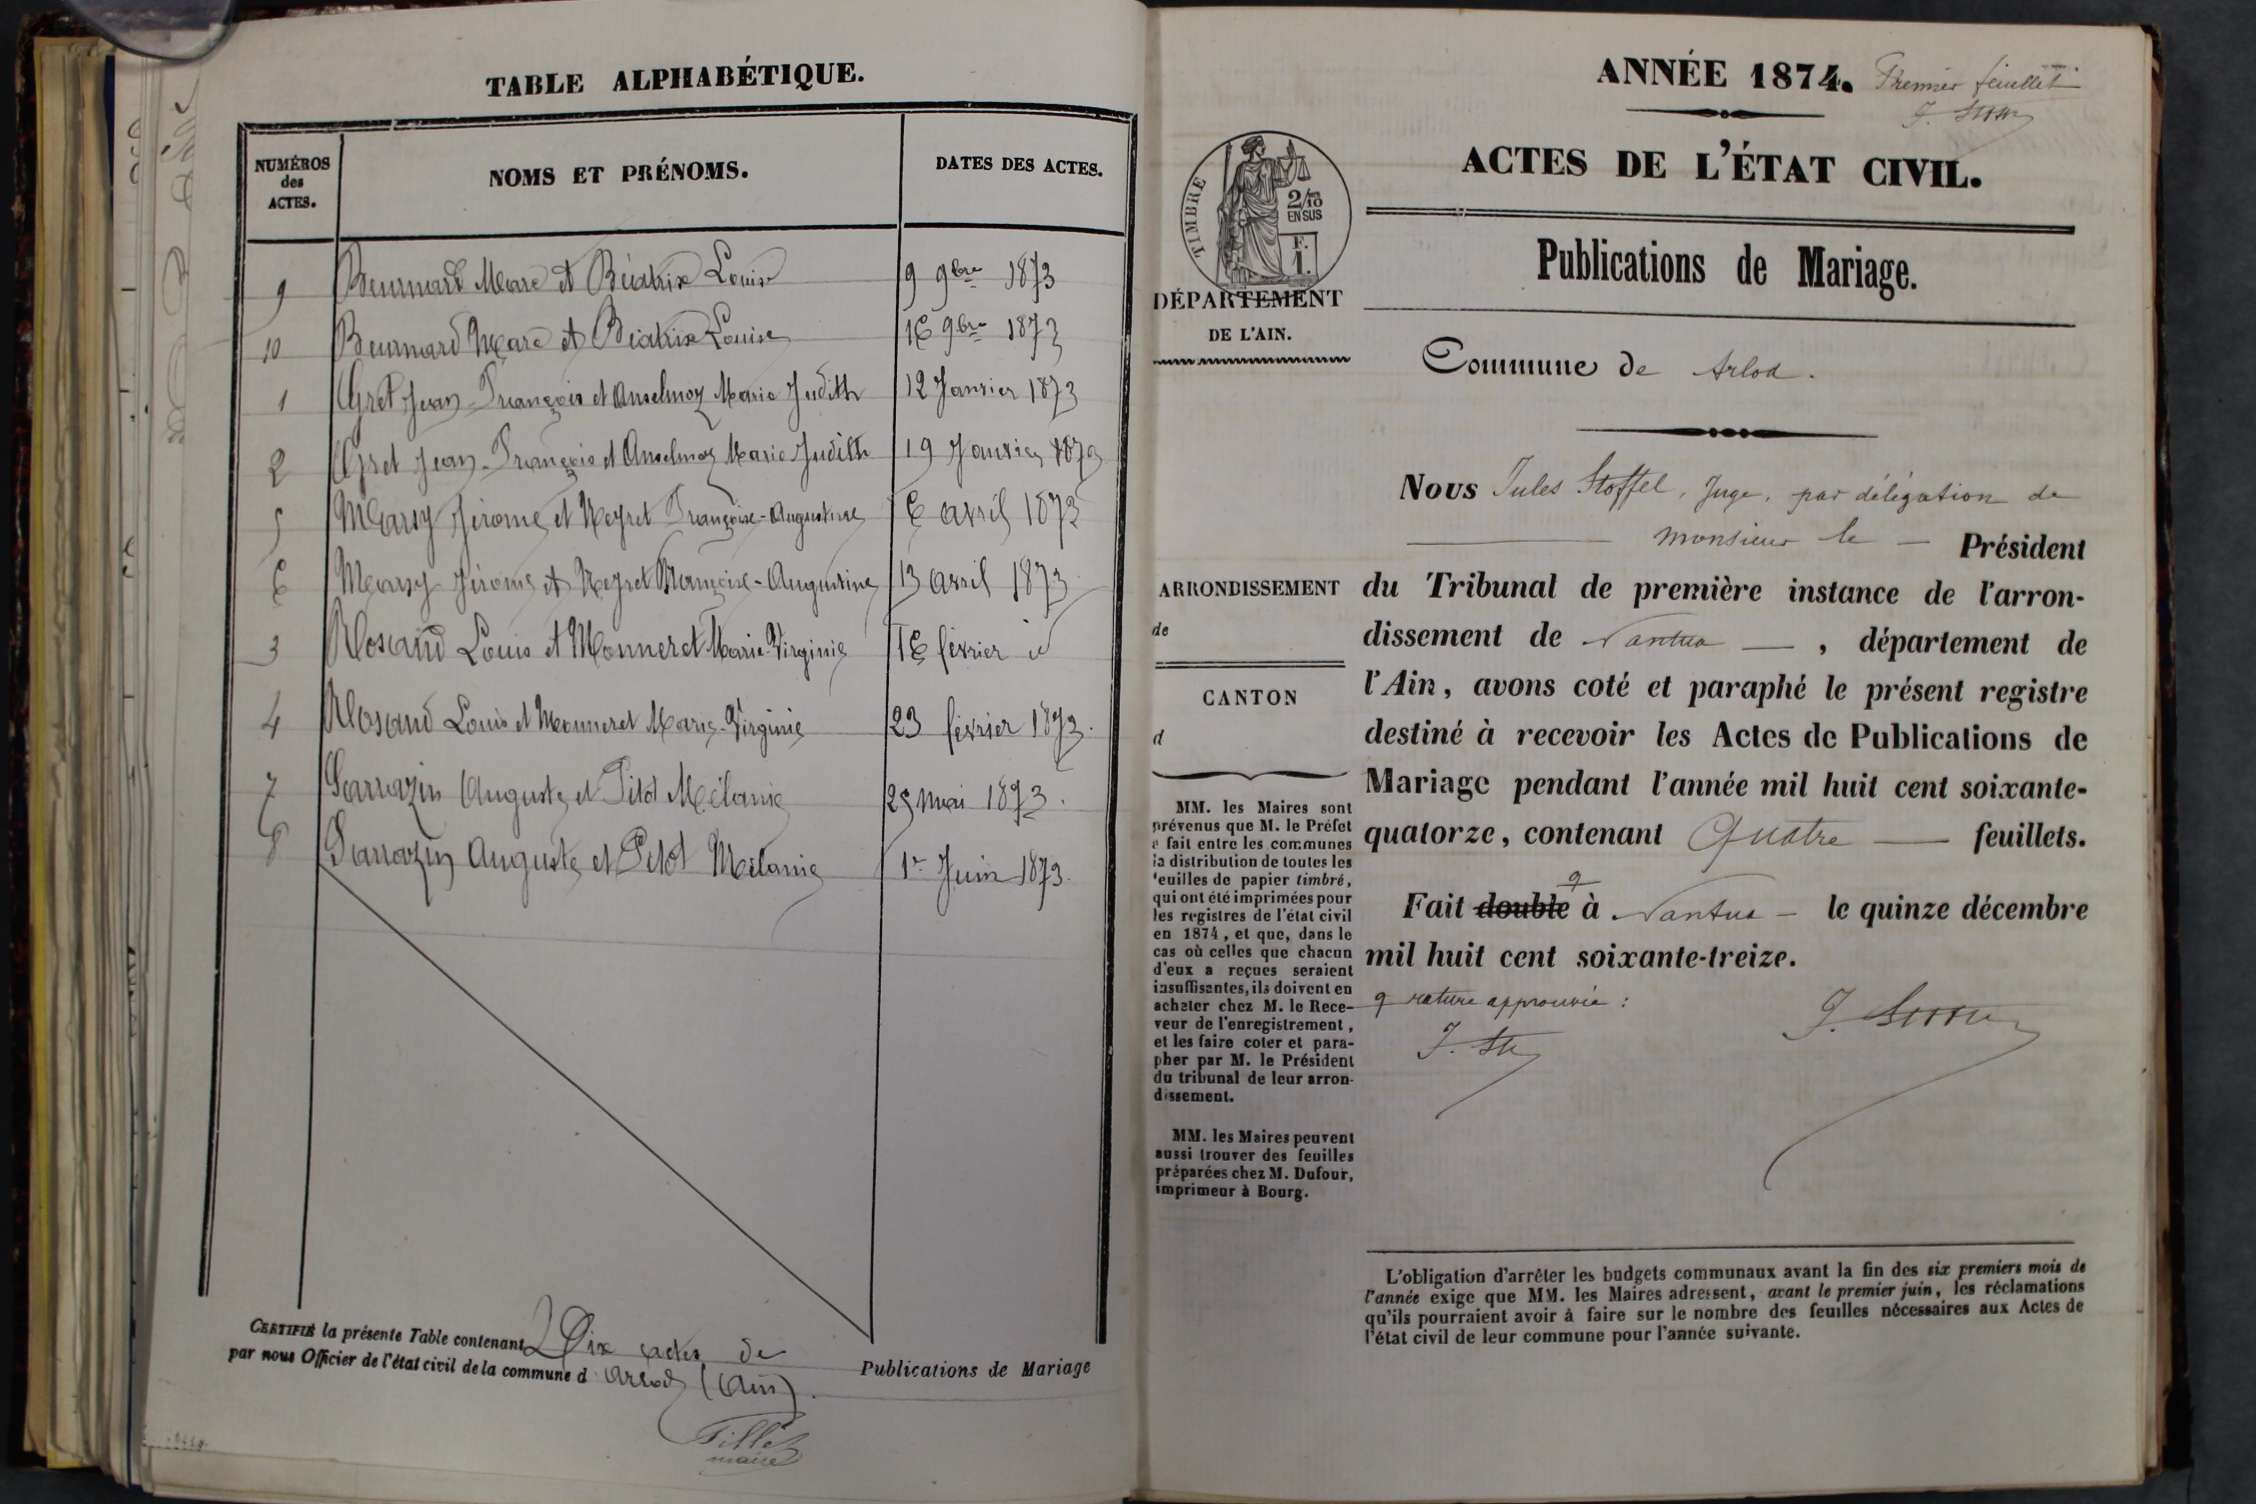 TABLE ALPHABÉTIQUE.
NUMÉROS
des
ACTES.
NOMS ET PRÉNOMS.
DATES DES ACTES.
9 Beurnard Marc et Béatrix Louise 9 9bre 1873
10 Beurnard Marc et Béatrix Louise 16 9bre 1873
1 Gret Jean François et Anselmoz Marie Judith 12 Janvier 1873
2 Gret Jean-François et Anselmoz Marie Judith 19 Janvier 1873
5 Marsy Jérome et Neyret Françoise-Augustine 6 avril 1873
6 Marsy Jérome et Neyret Françoise-Augustine 13 avril 1873
3 Rosand Louis et Monneret Marie-Virginie 16 février id
4 Rosand Louis et Monneret Marie-Virginie 23 février 1873.
7 Sarrazin Auguste et Pitot Mélanie 25 mai 1873.
8 Sarrazin Auguste et Pitot Mélanie 1er Juin 1873.
CERTIFIÉ la présente Table contenant Dix actes de Publications de Mariage
par nous Officier de l'état civil de la commune d Arlod (Ain).
Fillet
maire
ANNÉE 1874. Premier feuillet
ACTES DE L'ÉTAT CIVIL.
TIMBRE
2/10
EN SUS
F.
1.
Publications de Mariage.
DÉPARTEMENT
DE L'AIN.
Commune de Arlod.
Nous Jules Stoffel, Juge, par délégation de
monsieur le Président
du Tribunal de première instance de l'arron-
dissement de Nantua, département de
l'Ain, avons coté et paraphé le présent registre
destiné à recevoir les Actes de Publications de
Mariage pendant l'année mil huit cent soixante-
quatorze, contenant Quatre feuillets.
Fait double à Nantua le quinze décembre
mil huit cent soixante-treize.
rature approuvée :
J. St
ARRONDISSEMENT
de
CANTON
d
MM. les Maires sont
prévenus que M. le Préfet
a fait entre les communes
la distribution de toutes les
feuilles de papier timbré,
qui ont été imprimées pour
les registres de l'état civil
en 1874, et que, dans le
cas où celles que chacun
d'eux a reçues seraient
insuffisantes, ils doivent en
acheter chez M. le Rece-
veur de l'enregistrement,
et les faire coter et para-
pher par M. le Président
du tribunal de leur arron-
dissement.
MM. les Maires peuvent
aussi trouver des feuilles
préparées chez M. Dufour,
imprimeur à Bourg.
L'obligation d'arrêter les budgets communaux avant la fin des six premiers mois de
l'année exige que MM. les Maires adressent, avant le premier juin, les réclamations
qu'ils pourraient avoir à faire sur le nombre des feuilles nécessaires aux Actes de
l'état civil de leur commune pour l'année suivante.